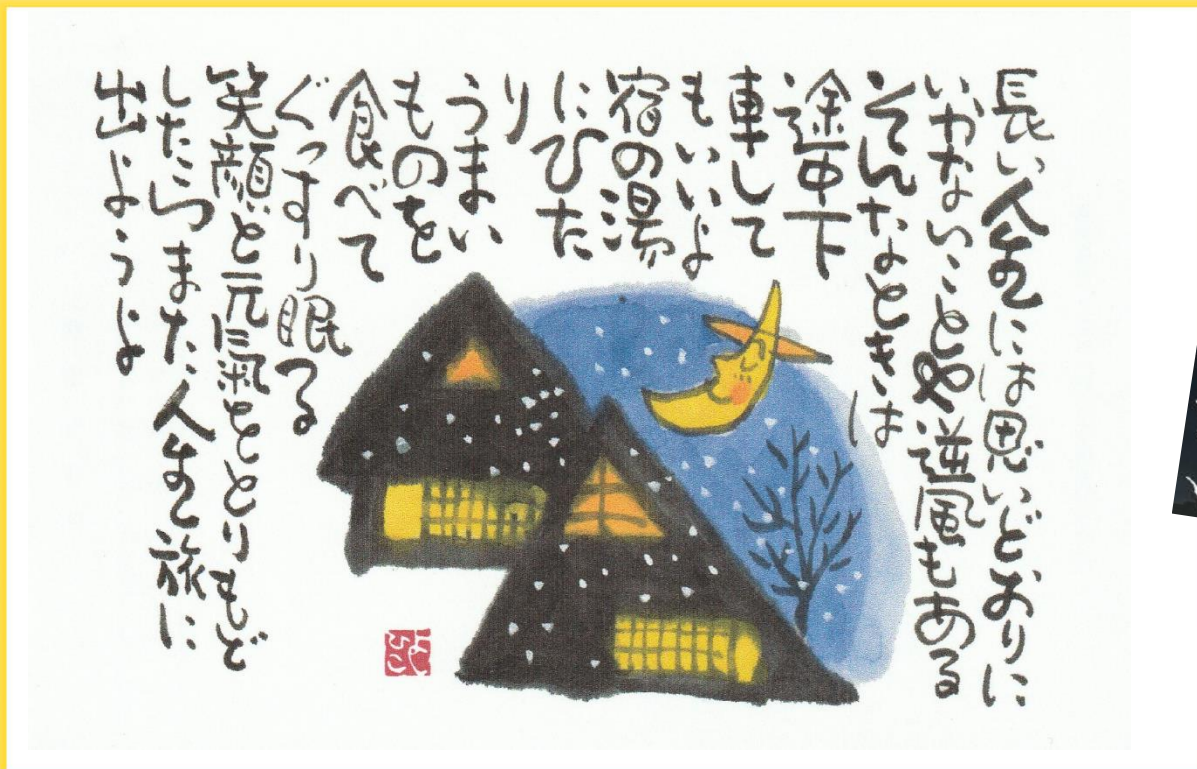 長い人生には思いどおりに
いかないことや逆風もある
そんなときは
途中下
車して
もいいよ
宿の湯
にひた
り
うまい
ものを
食べて
ぐっすり眠る
笑顔と元氣をとりもど
したらまた人生旅に
出ようよ